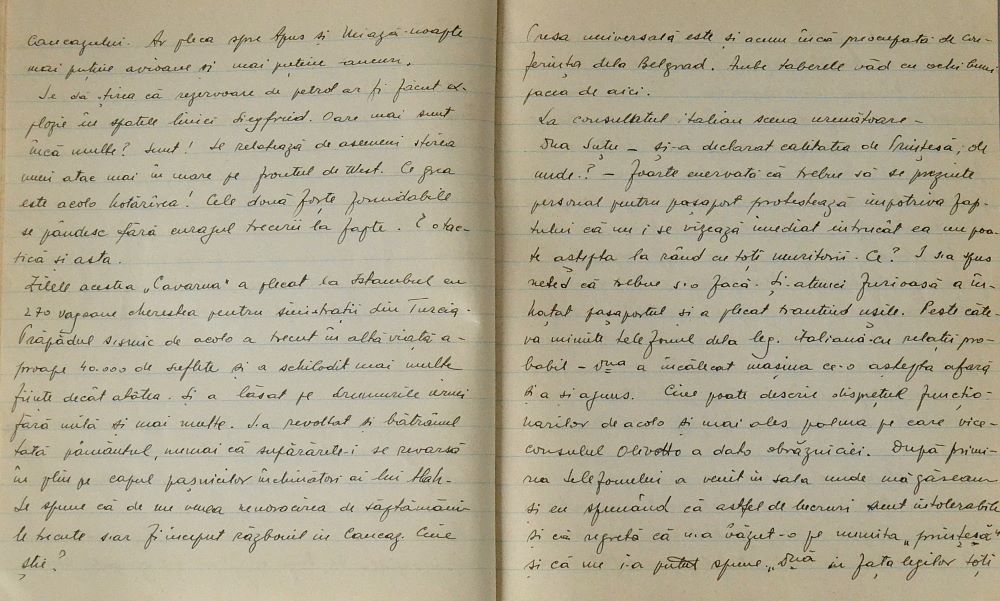 Caucazului. Ar pleca spre Apus și Miază-noapte
mai puține avioane și mai puține tancuri.
Se dă știrea că rezervoare de petrol ar fi făcut ex-
plozie în spatele liniei Siegfried. Oare mai sunt
încă multe? Sunt! Se relatează de asemeni știrea
unui atac mai în mare pe frontul de West. Ce grea
este acolo hotărîrea! Cele două forțe formidabile
se pândesc fără curagiul trecerii la fapte. E o tac-
tică și asta.
Zilele acestea „Cavarna" a plecat la Istambul cu
270 vagoane cherestea pentru sinistrații din Turcia.
Prăpădul sismic de acolo a trecut în altă viață a-
proape 40.000 de suflete și a schilodit mai multe
ființe decât atâtea. Și a lăsat pe drumurile iernei
fără milă și mai multe. S-a revoltat și bătrânul
tată pământul, numai că supărarea-i se revarsă
în plin pe capul pașnicilor închinători ai lui Allah.
Se spune că de nu venea nenorocirea de săptămâni-
le trecute s-ar fi început războiul în Caucaz. Cine
știe?
Presa universală este și acum încă preocupată de con-
ferința dela Belgrad. Ambe taberele văd cu ochi buni
pacea de aici.
La consulatul italian scena următoare –
Dna Suțu – și-a declarat calitatea de Prințesă, de
unde? – Foarte enervată că trebue să se prezinte
personal pentru pașaport protestează împotriva fap-
tului că nu i se vizează imediat întrucât ea nu poa-
te aștepta la rând cu toți muritorii. Ce? I s-a spus
neted că trebue s-o facă. Și atunci furioasă a în-
hațat pașaportul și a plecat trantind ușile. Peste câte-
va minute telefonul dela leg. italiană – cu relații pro-
babil – Dna a încălecat mașina ce-o aștepta afară
și a și ajuns. Cine poate descrie disprețul funcțio-
narilor de acolo și mai ales palma pe care vice-
consulul Olivotto a dat-o obrăzniciei. După primi-
rea telefonului a venit în sala unde mă găseam
și eu spunând că astfel de lucruri sunt intolerabile
și că regretă că n-a văzut-o pe numita „prințesă"
și că nu i-a putut spune. „Dnă in fața legilor toți